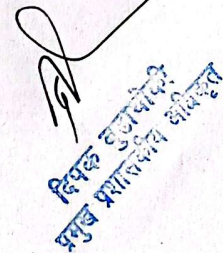 दिपक बुढाथोकी
प्रमुख प्रशासकीय अधिकृत